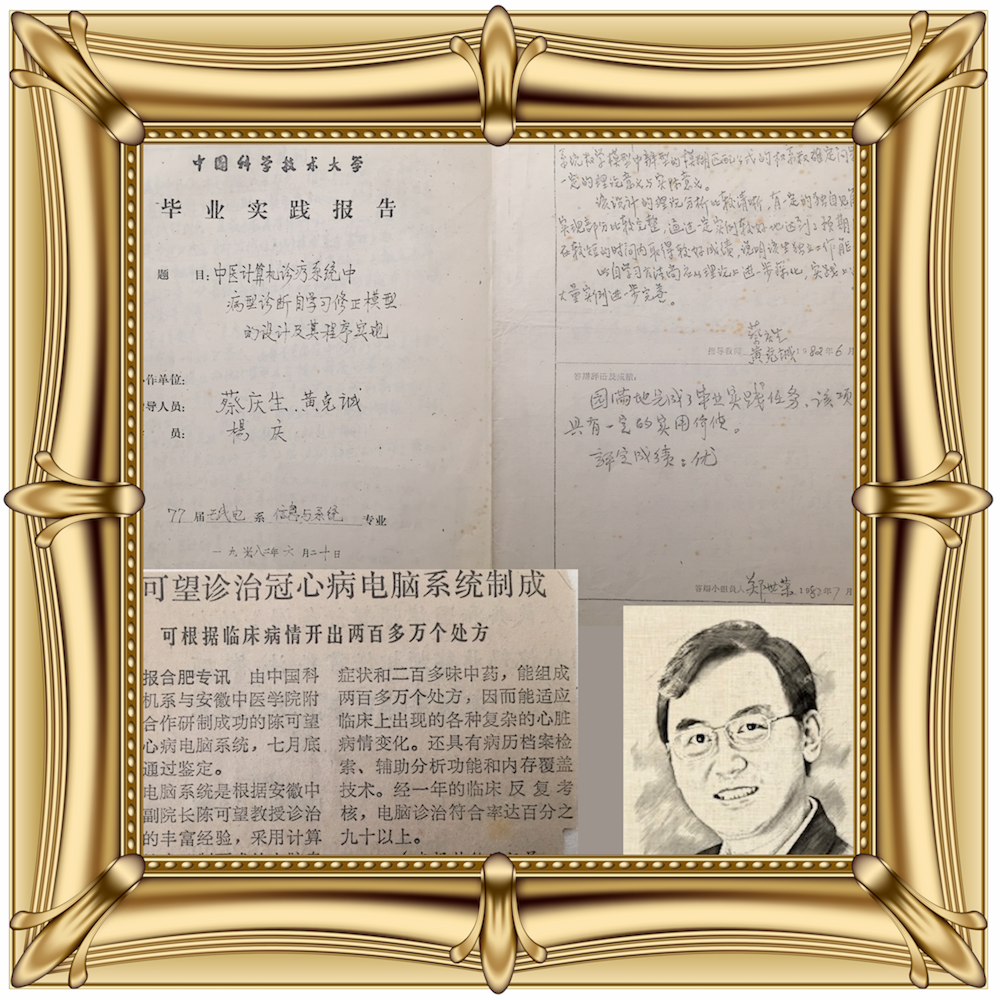 中国科学技术大学
毕业实践报告
题 目：中医计算机诊疗系统中
病型诊断自学习修正模型
的设计及其程序实现
作单位：
导人员：蔡庆生、黄克诚
员：楊庆
77 届 无线电 系 信息与系统 专业
一九八二年六月二十日
系统数学模型中辨型的模糊匹配公式的权系数确定问
一定的理论意义与实际意义。
该设计的理论分析比较清晰，有一定的独自见
实现部分比较完整，通过一定实例较好地达到了预期
在较短的时间内取得较好成绩，说明该生独立工作能
此自学习方法尚应从理论上进一步深化，实践上
大量实例进一步完善。
蔡庆生
黄克诚 1982年6月
答辩评语及成绩：
圆满地完成了毕业实践任务、该项
具有一定的实用价值。
評定成绩：优
答辩小组负人 郑世荣 1982年7月
可望诊治冠心病电脑系统制成
可根据临床病情开出两百多万个处方
报合肥专讯 由中国科
机系与安徽中医学院附
合作研制成功的陈可望
心病电脑系统，七月底
通过鉴定。
电脑系统是根据安徽中
副院长陈可望教授诊治
的丰富经验，采用计算
症状和二百多味中药，能组成
两百多万个处方，因而能适应
临床上出现的各种复杂的心脏
病情变化。还具有病历档案检
索、辅助分析功能和内存覆盖
技术。经一年的临床反复考
核，电脑诊治符合率达百分之
九十以上。